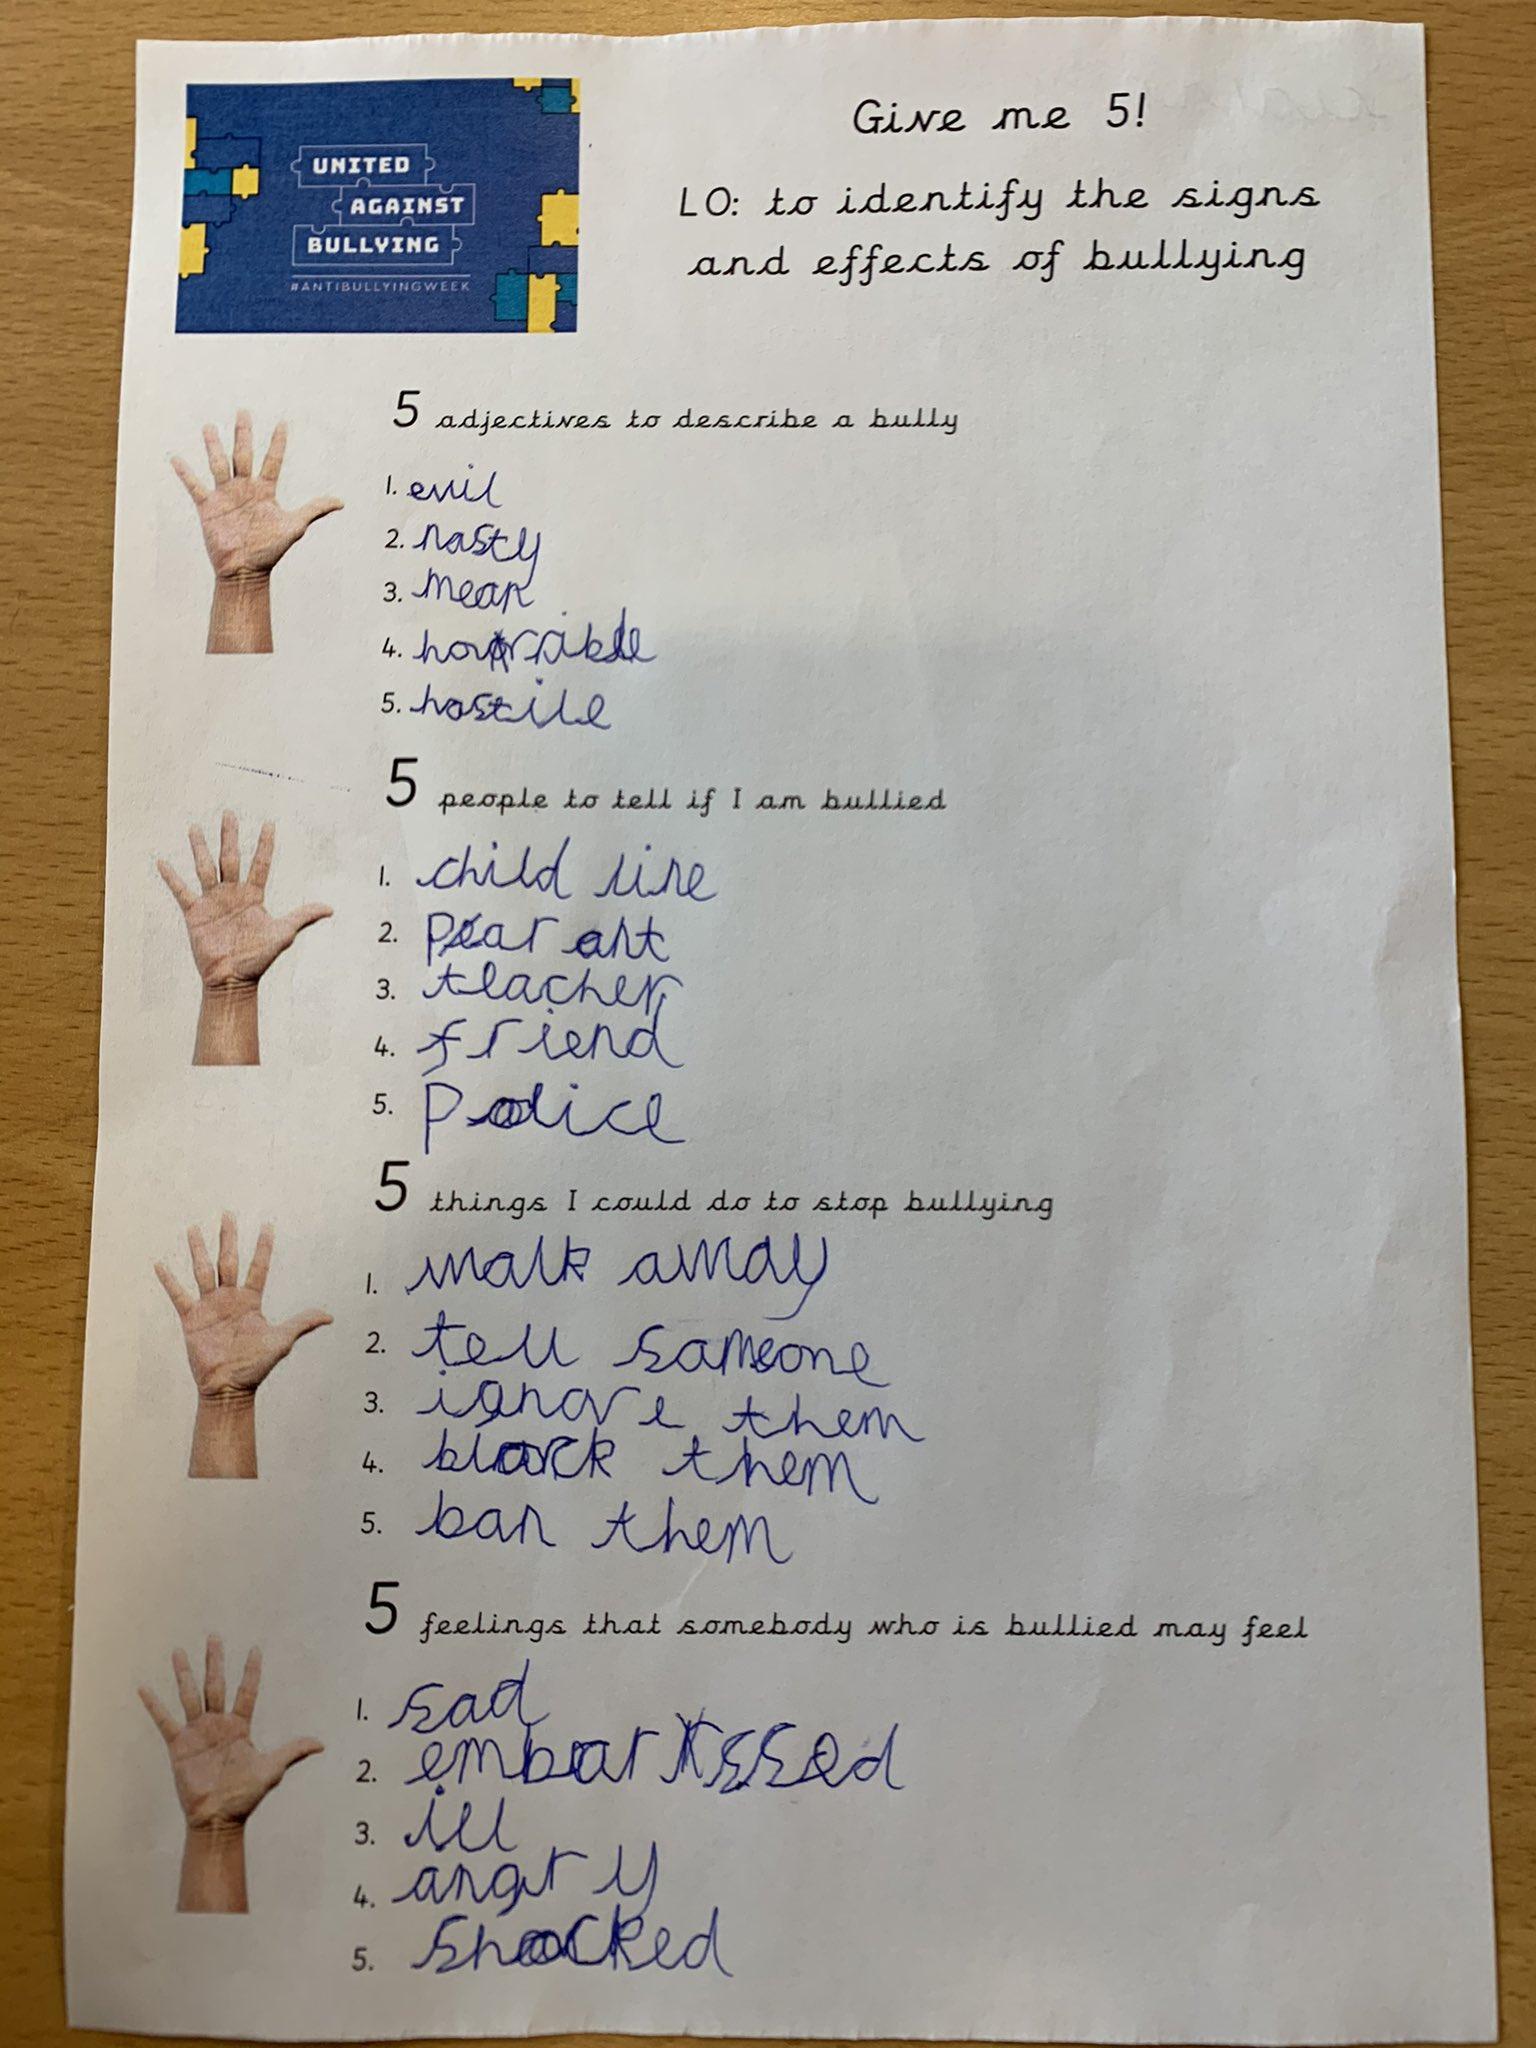 UNITED
AGAINST
BULLYING
#ANTIBULLYINGWEEK
Give me 5!
LO: to identify the signs
and effects of bullying
5 adjectives to describe a bully
1. evil
2. nasty
3. mean
4. horrible
5. hostile
5 people to tell if I am bullied
1. child line
2. parant
3. teacher
4. friend
5. police
5 things I could do to stop bullying
1. walk away
2. tell someone
3. ignore them
4. block them
5. ban them
5 feelings that somebody who is bullied may feel
1. sad
2. embarrssed
3. ill
4. angry
5. shocked